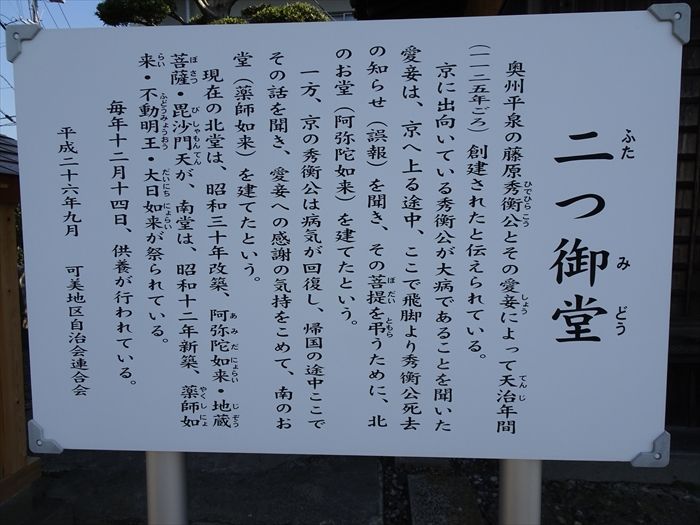 二つ御堂
奥州平泉の藤原秀衡公とその愛妾によって天治年間
（一一二五年ごろ）創建されたと伝えられている。
京に出向いている秀衡公が大病であることを聞いた
愛妾は、京へ上る途中、ここで飛脚より秀衡公死去
の知らせ（誤報）を聞き、その菩提を弔うために、北
のお堂（阿弥陀如来）を建てたという。
一方、京の秀衡公は病気が回復し、帰国の途中ここで
その話を聞き、愛妾への感謝の気持をこめて、南のお
堂（薬師如来）を建てたという。
現在の北堂は、昭和三十年改築、阿弥陀如来・地蔵
菩薩・毘沙門天が、南堂は、昭和十二年新築、薬師如
来・不動明王・大日如来が祭られている。
毎年十二月十四日、供養が行われている。
平成二十六年九月　可美地区自治会連合会